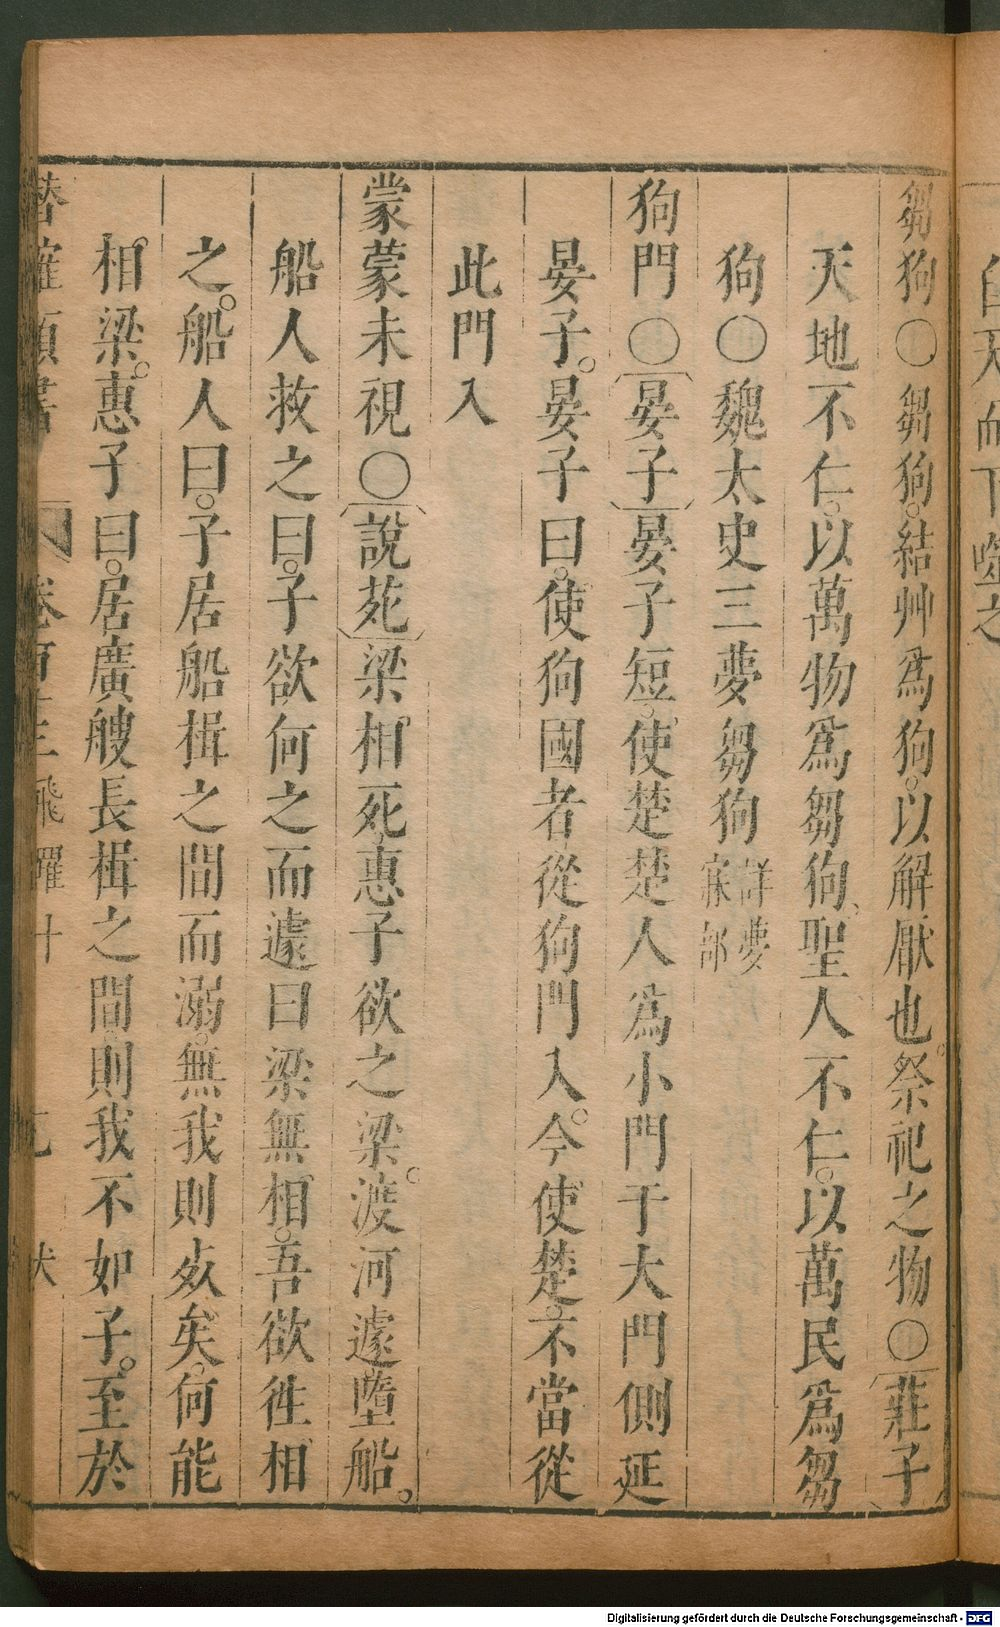 芻狗〇芻狗。結艸爲狗。以解厭也。祭祀之物〇莊子
天地不仁。以萬物爲芻狗。聖人不仁。以萬民爲芻
狗〇魏太史三夢芻狗詳夢寐部
狗門〇晏子晏子短。使楚楚人爲小門于大門側延
晏子。晏子曰。使狗國者從狗門入。今使楚。不當從
此門入
蒙蒙未視〇說苑梁相死惠子欲之梁。渡河遽墮船。
船人救之曰。子欲何之而遽曰梁無相。吾欲徃相
之。船人曰。子居船楫之間而溺。無我則死矣。何能
相梁。惠子曰。居廣艘長楫之間。則我不如子。至於
卷百十三 飛躍十 尢 犬
Digitalisierung gefördert durch die Deutsche Forschungsgemeinschaft - DFG